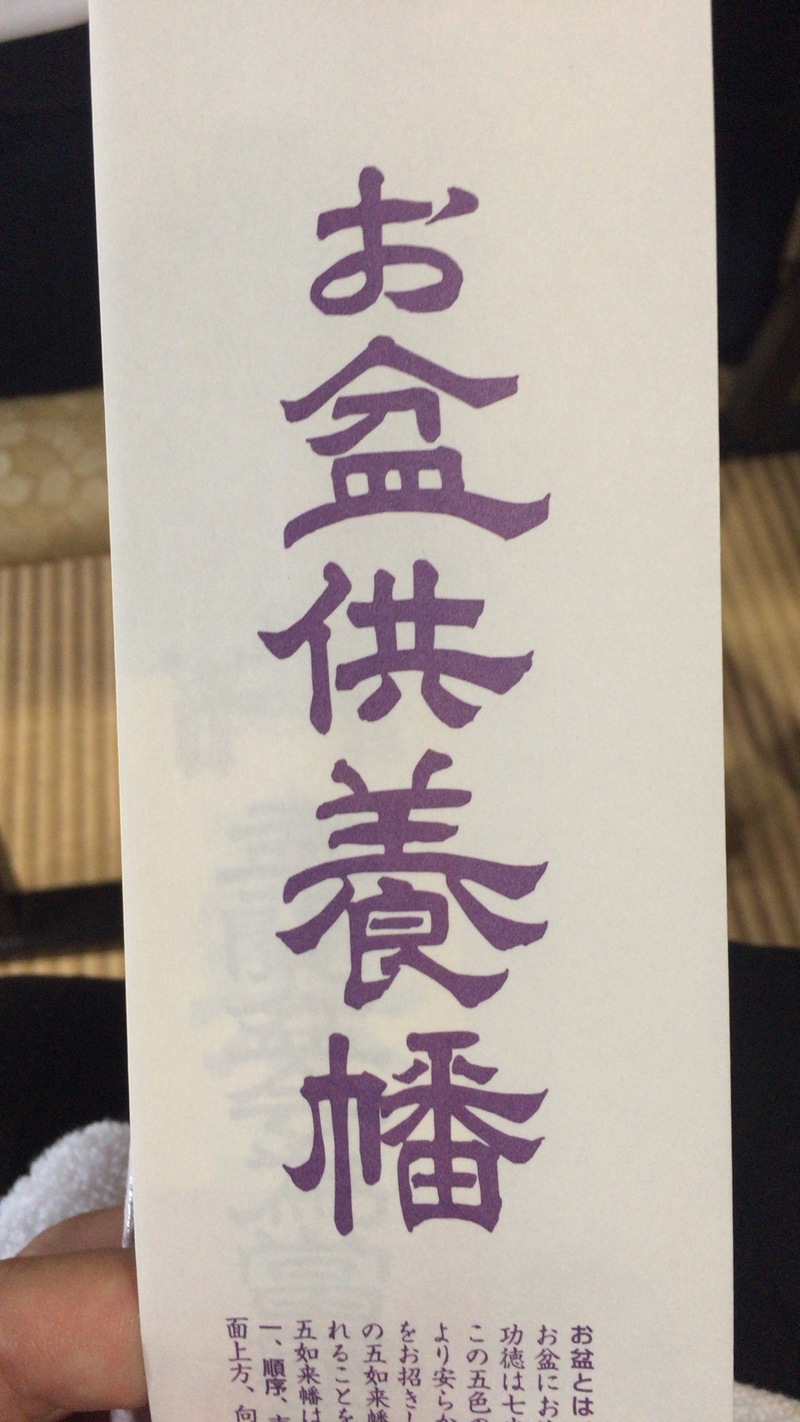 お盆供養幡
お盆とは
お盆にお
功徳は七
この五色の
より安らか
をお招きし
の五如来幡
れることを
五如来幡は
一、順序、
面上方、向